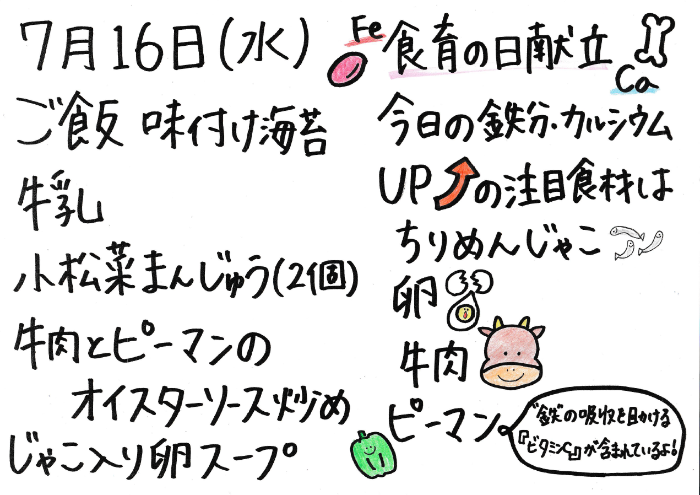 7月16日(水)
ご飯 味付け海苔
牛乳
小松菜まんじゅう(2個)
牛肉とピーマンの
オイスターソース炒め
じゃこ入り卵スープ
Fe 食育の日献立 Ca
今日の鉄分・カルシウム
UPの注目食材は
ちりめんじゃこ
卵
牛肉
ピーマン
"鉄"の吸収を助ける
『ビタミンC』が含まれているよ!